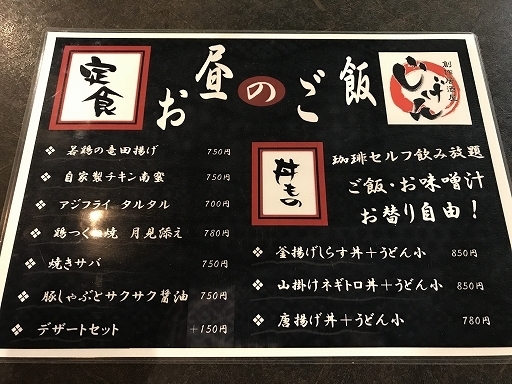 お昼のご飯
創作居酒屋
じげん
定食
若鶏の竜田揚げ 750円
自家製チキン南蛮 750円
アジフライ タルタル 700円
鶏つくね焼 月見添え 780円
焼きサバ 750円
豚しゃぶとサクサク醤油 750円
デザートセット +150円
丼もの
珈琲セルフ飲み放題
ご飯・お味噌汁
お替り自由!
釜揚げしらす丼+うどん小 850円
山掛けネギトロ丼+うどん小 850円
唐揚げ丼+うどん小 780円